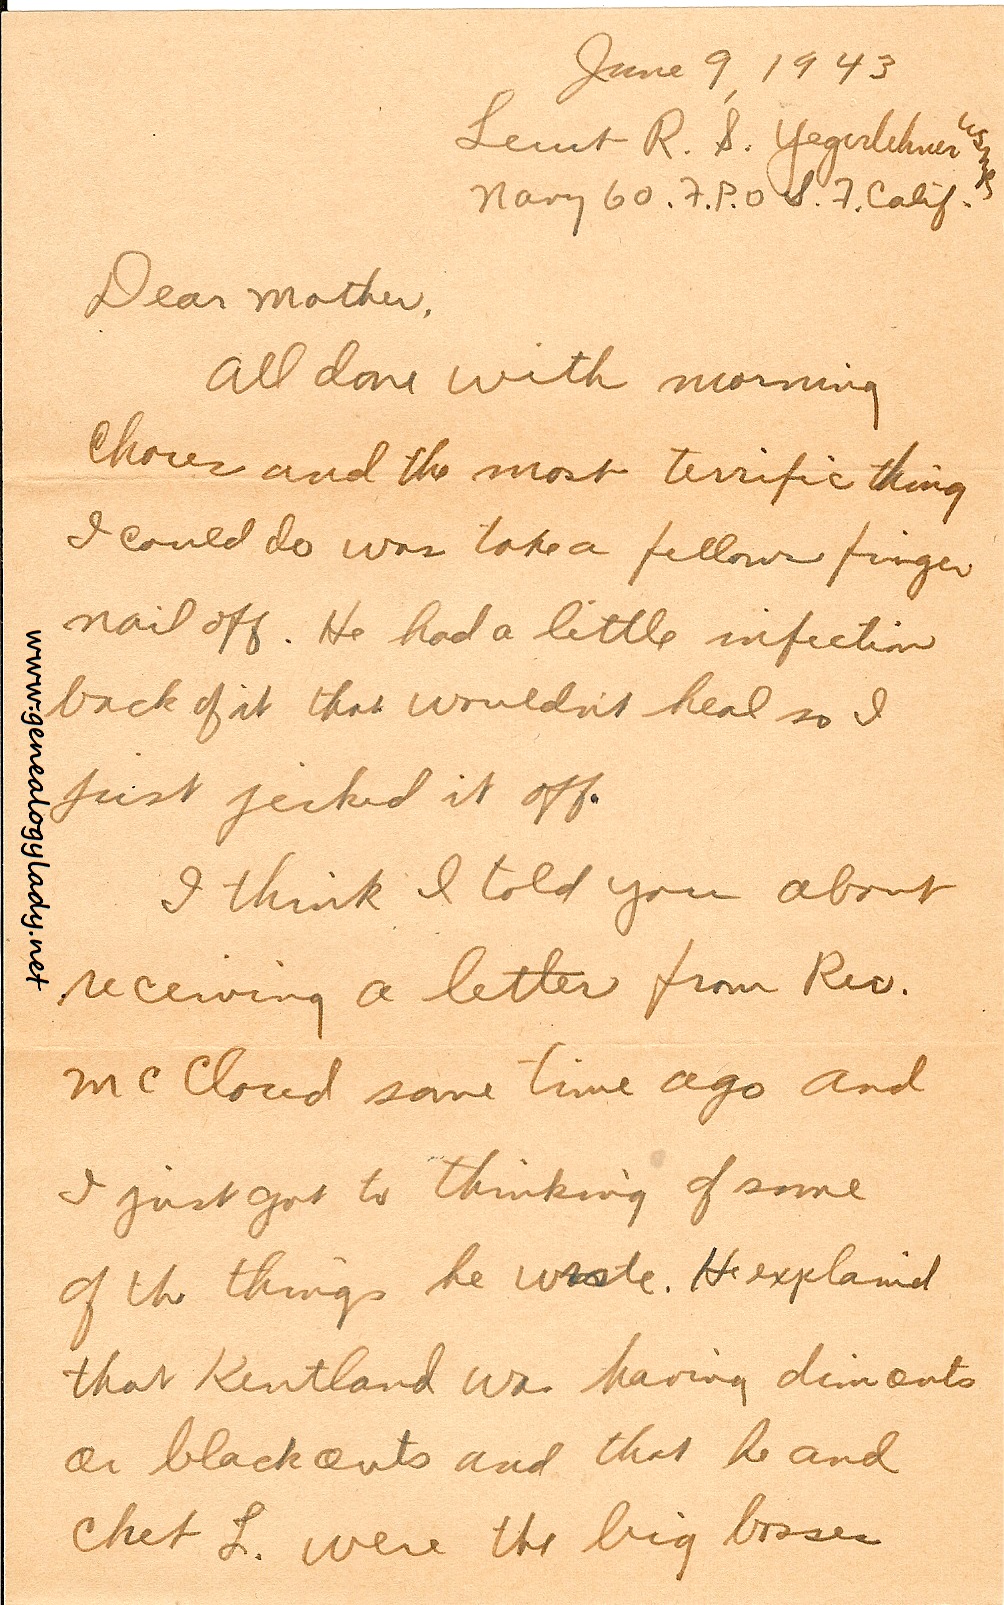 June 9, 1943
Lieut R. S. Yegerlehner USNR
Navy 60. F.P.O S.F. Calif.
Dear Mother,
All done with morning
chores and the most terrific thing
I could do was take a fellows finger
nail off. He had a little infection
back of it that wouldn't heal so I
just jerked it off.
I think I told you about
receiving a letter from Rev.
McCloud some time ago and
I just got to thinking of some
of the things he wrote. He explained
that Kentland was having dimouts
or blackouts and that he and
Chet L. were the big bosses
www.genealogylady.net